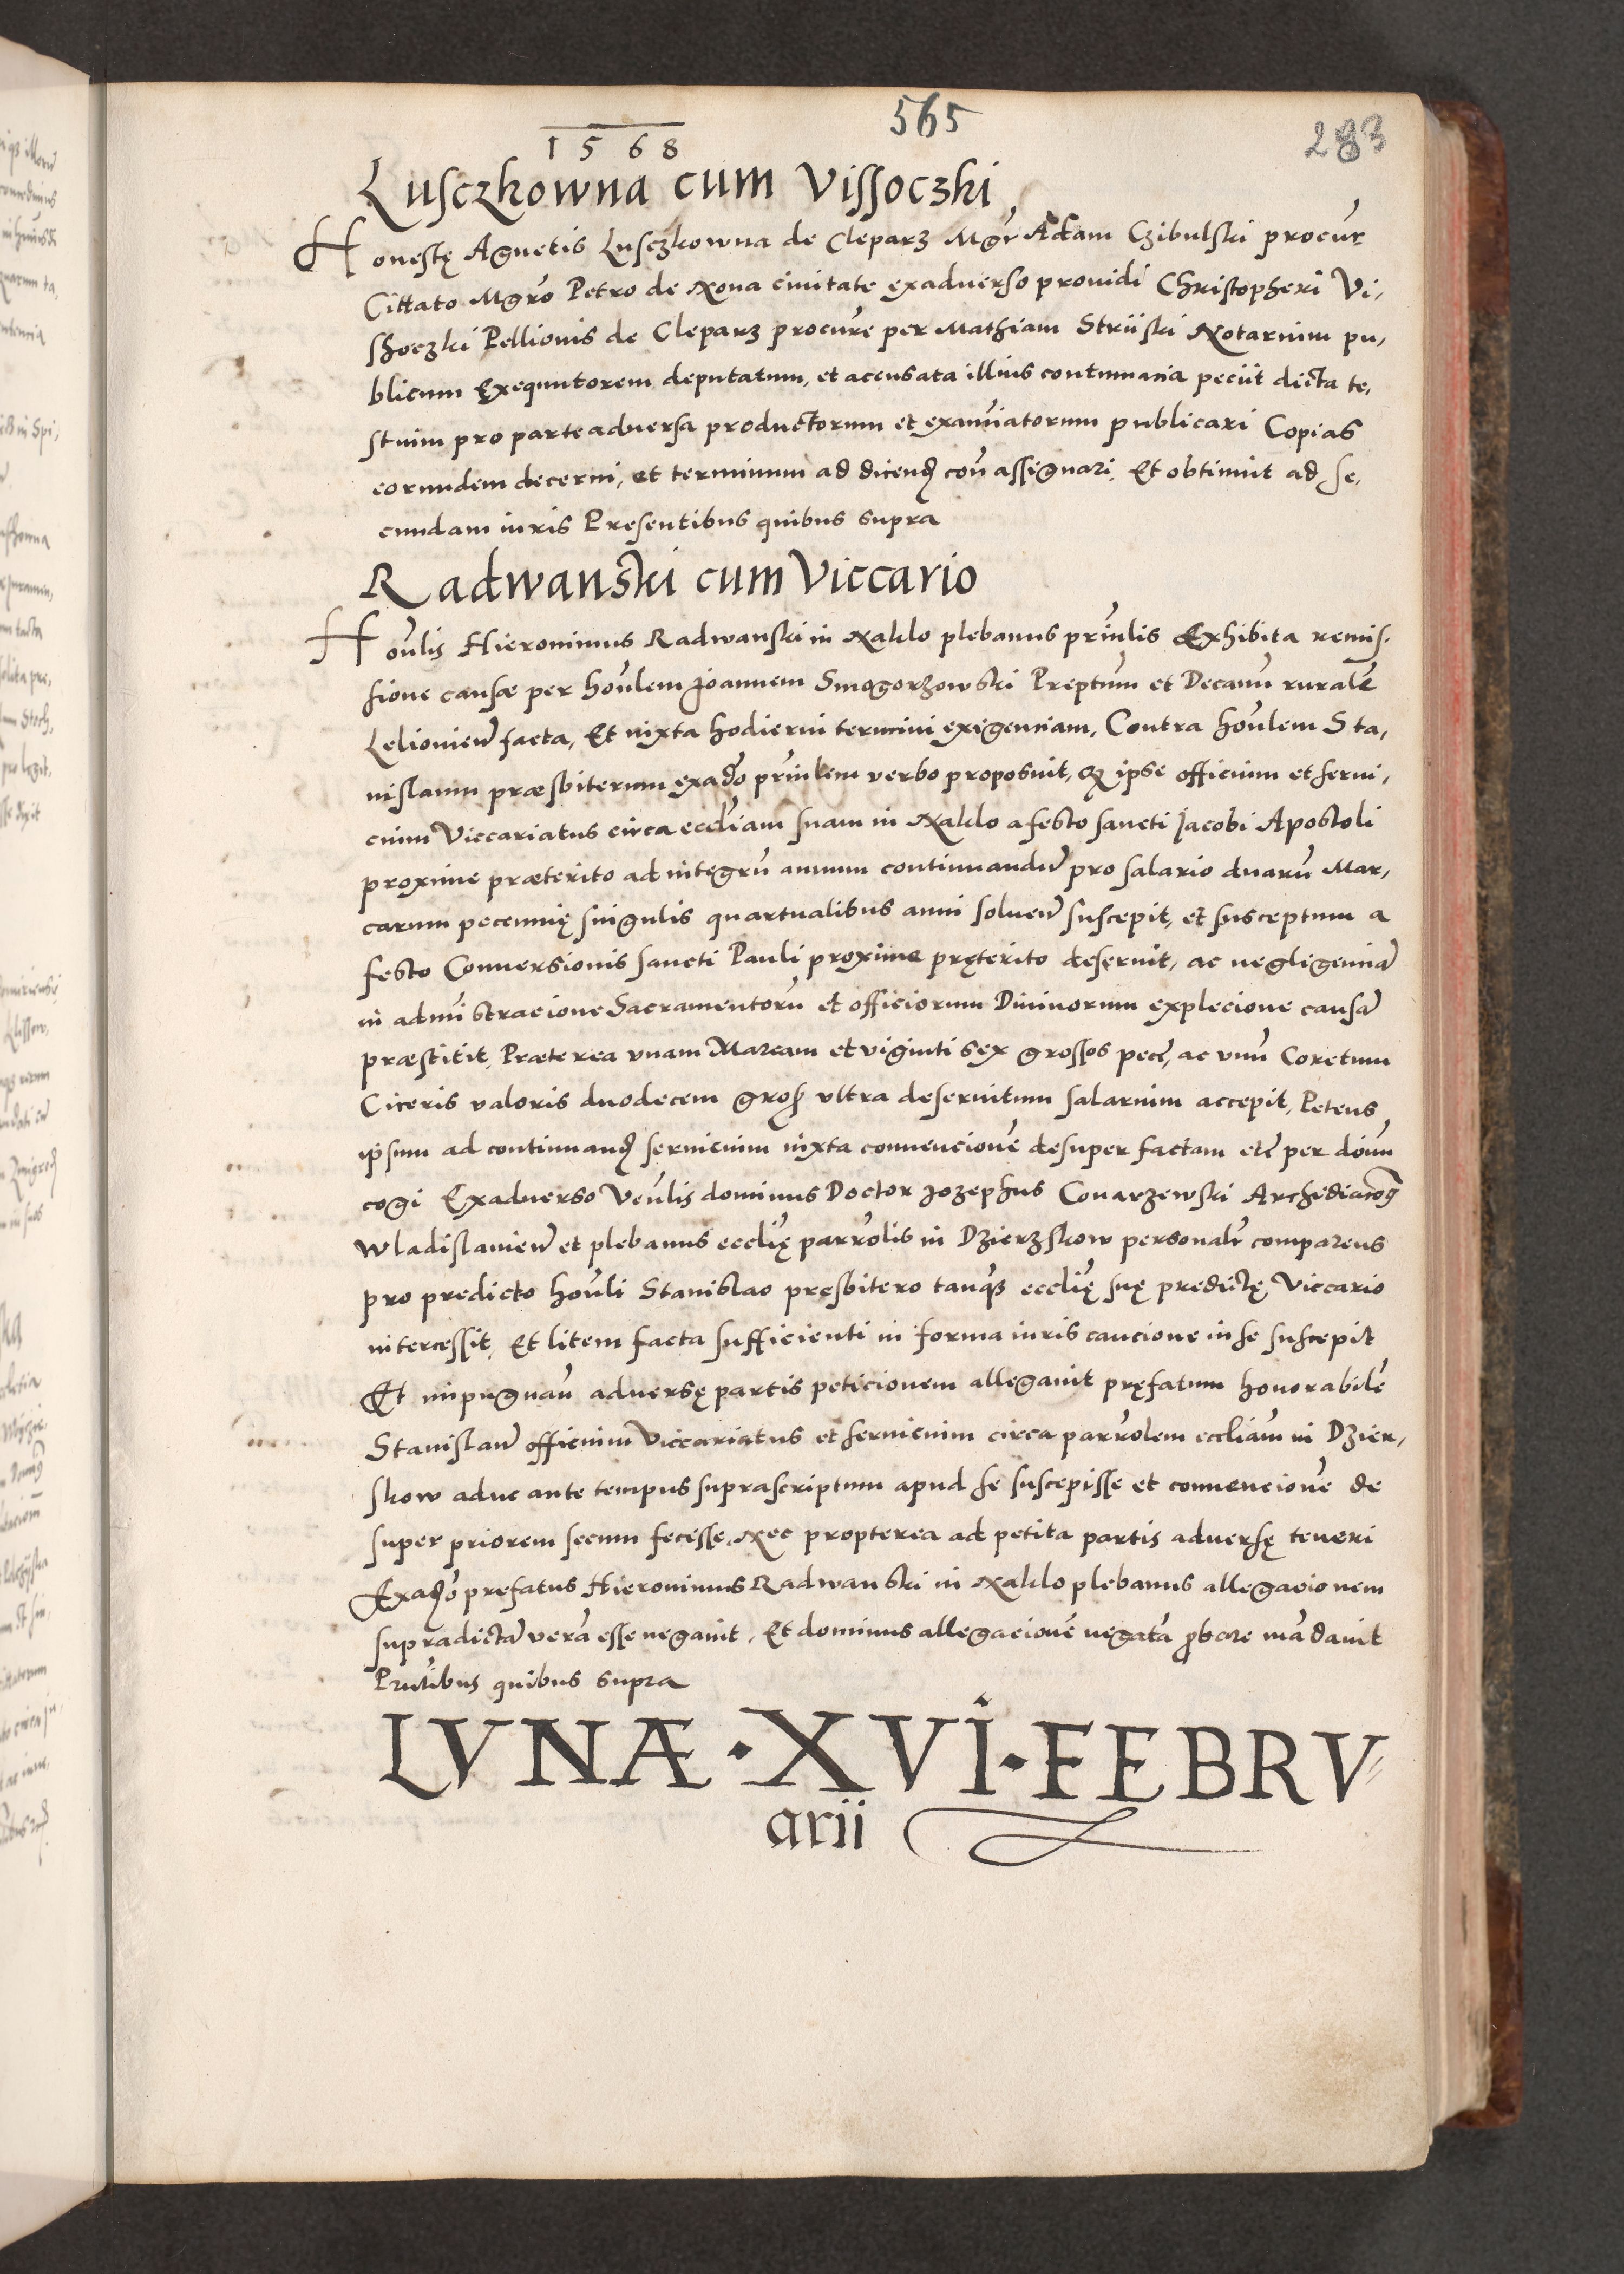 565
283
1568
Lusczkowna cum Vissoczki
Honestę Agnetis Lusczkowna de Cleparz Mgr̃ Adam Czibulski procur̃
Cittato Mgrõ Petro de Nova civitate exadverso providi Christopheri Vi,
shoczki Pellionis de Cleparz procurẽ per Mathiam Striiski Notarium pu,
blicum Exequutorem deputatum, et accusata illius contumacia peciit dicta te,
stium pro parte adversa productorum et examĩatorum publicari Copias
eorundem decerni, et terminum ad dicend coñ assignari, Et obtinuit ad se,
cundam iuris Presentibus quibus supra
Radwanski cum Viccario
Hoñlis Hieronimus Radwanski in Naklo plebanus prñlis Exhibita remis,
sione causæ per hoñlem Joannem Smogorzowski Preptum̃ et Decanũ ruralẽ
Lelovieñ facta, Et iuxta hodierni termini exigenciam, Contra hoñlem Sta,
nislaum præsbiterum exadṽo prñlem verbo proposuit, q̃ ipse officium et servi,
cium Viccariatus circa eccliam̃ suam in Naklo a festo sancti Jacobi Apostoli
proxime præterito ad integrũ annum continuandũ pro salario duarũ Mar,
carum pecunnię singulis quartualibus anni solveñ suscepit, et susceptum a
festo Conversionis sancti Pauli proxime pręterito deseruit, ac negligenciã
in admĩstracione Sacramentorũ et officiorum Divinorum explecione causã
præstitit, Præterea unam Marcam et viginti sex grossos pecc̃, ac unũ Coretum
Ciceris valoris duodecem gros ultra deservitum salarium accepit, Petens
ipsum ad continuand servicium iuxta convencionẽ desuper factam etc̃ per doĩum
cogi Exadverso Veñlis dominus Doctor Jozephus Conarzewski Archidiacoñ
Wladislavieñ et plebanus ecclię̃ parrõlis in Dzierzskow personalr̃ comparens
pro predicto hoñli Stanislao pręsbitero tanq̃ ecclię̃ suę predictę Viccario
intercessit, Et litem facta sufficienti in forma iuris caucione in se suscepit
Et impugnañ adversę partis peticionem allegavit pręfatum honorabilẽ
Stanislaũ officium Viccariatus et servicium circa parrõlem eccliam̃ in Dzier,
skow aduc ante tempus suprascriptum apud se suscepisse et convencionẽ de
super priorem secum fecisse, Nec propterea ad petita partis adversę teneri
Exadṽo prefatus Hieronimus Radwanski in Naklo plebanus allegacionem
supradictã verã esse negavit, Et dominus allegacionẽ negatã ꝓbare mãdavit
Prñtibus quibus supra
LVNÆ · XVI · FEBRV
arii